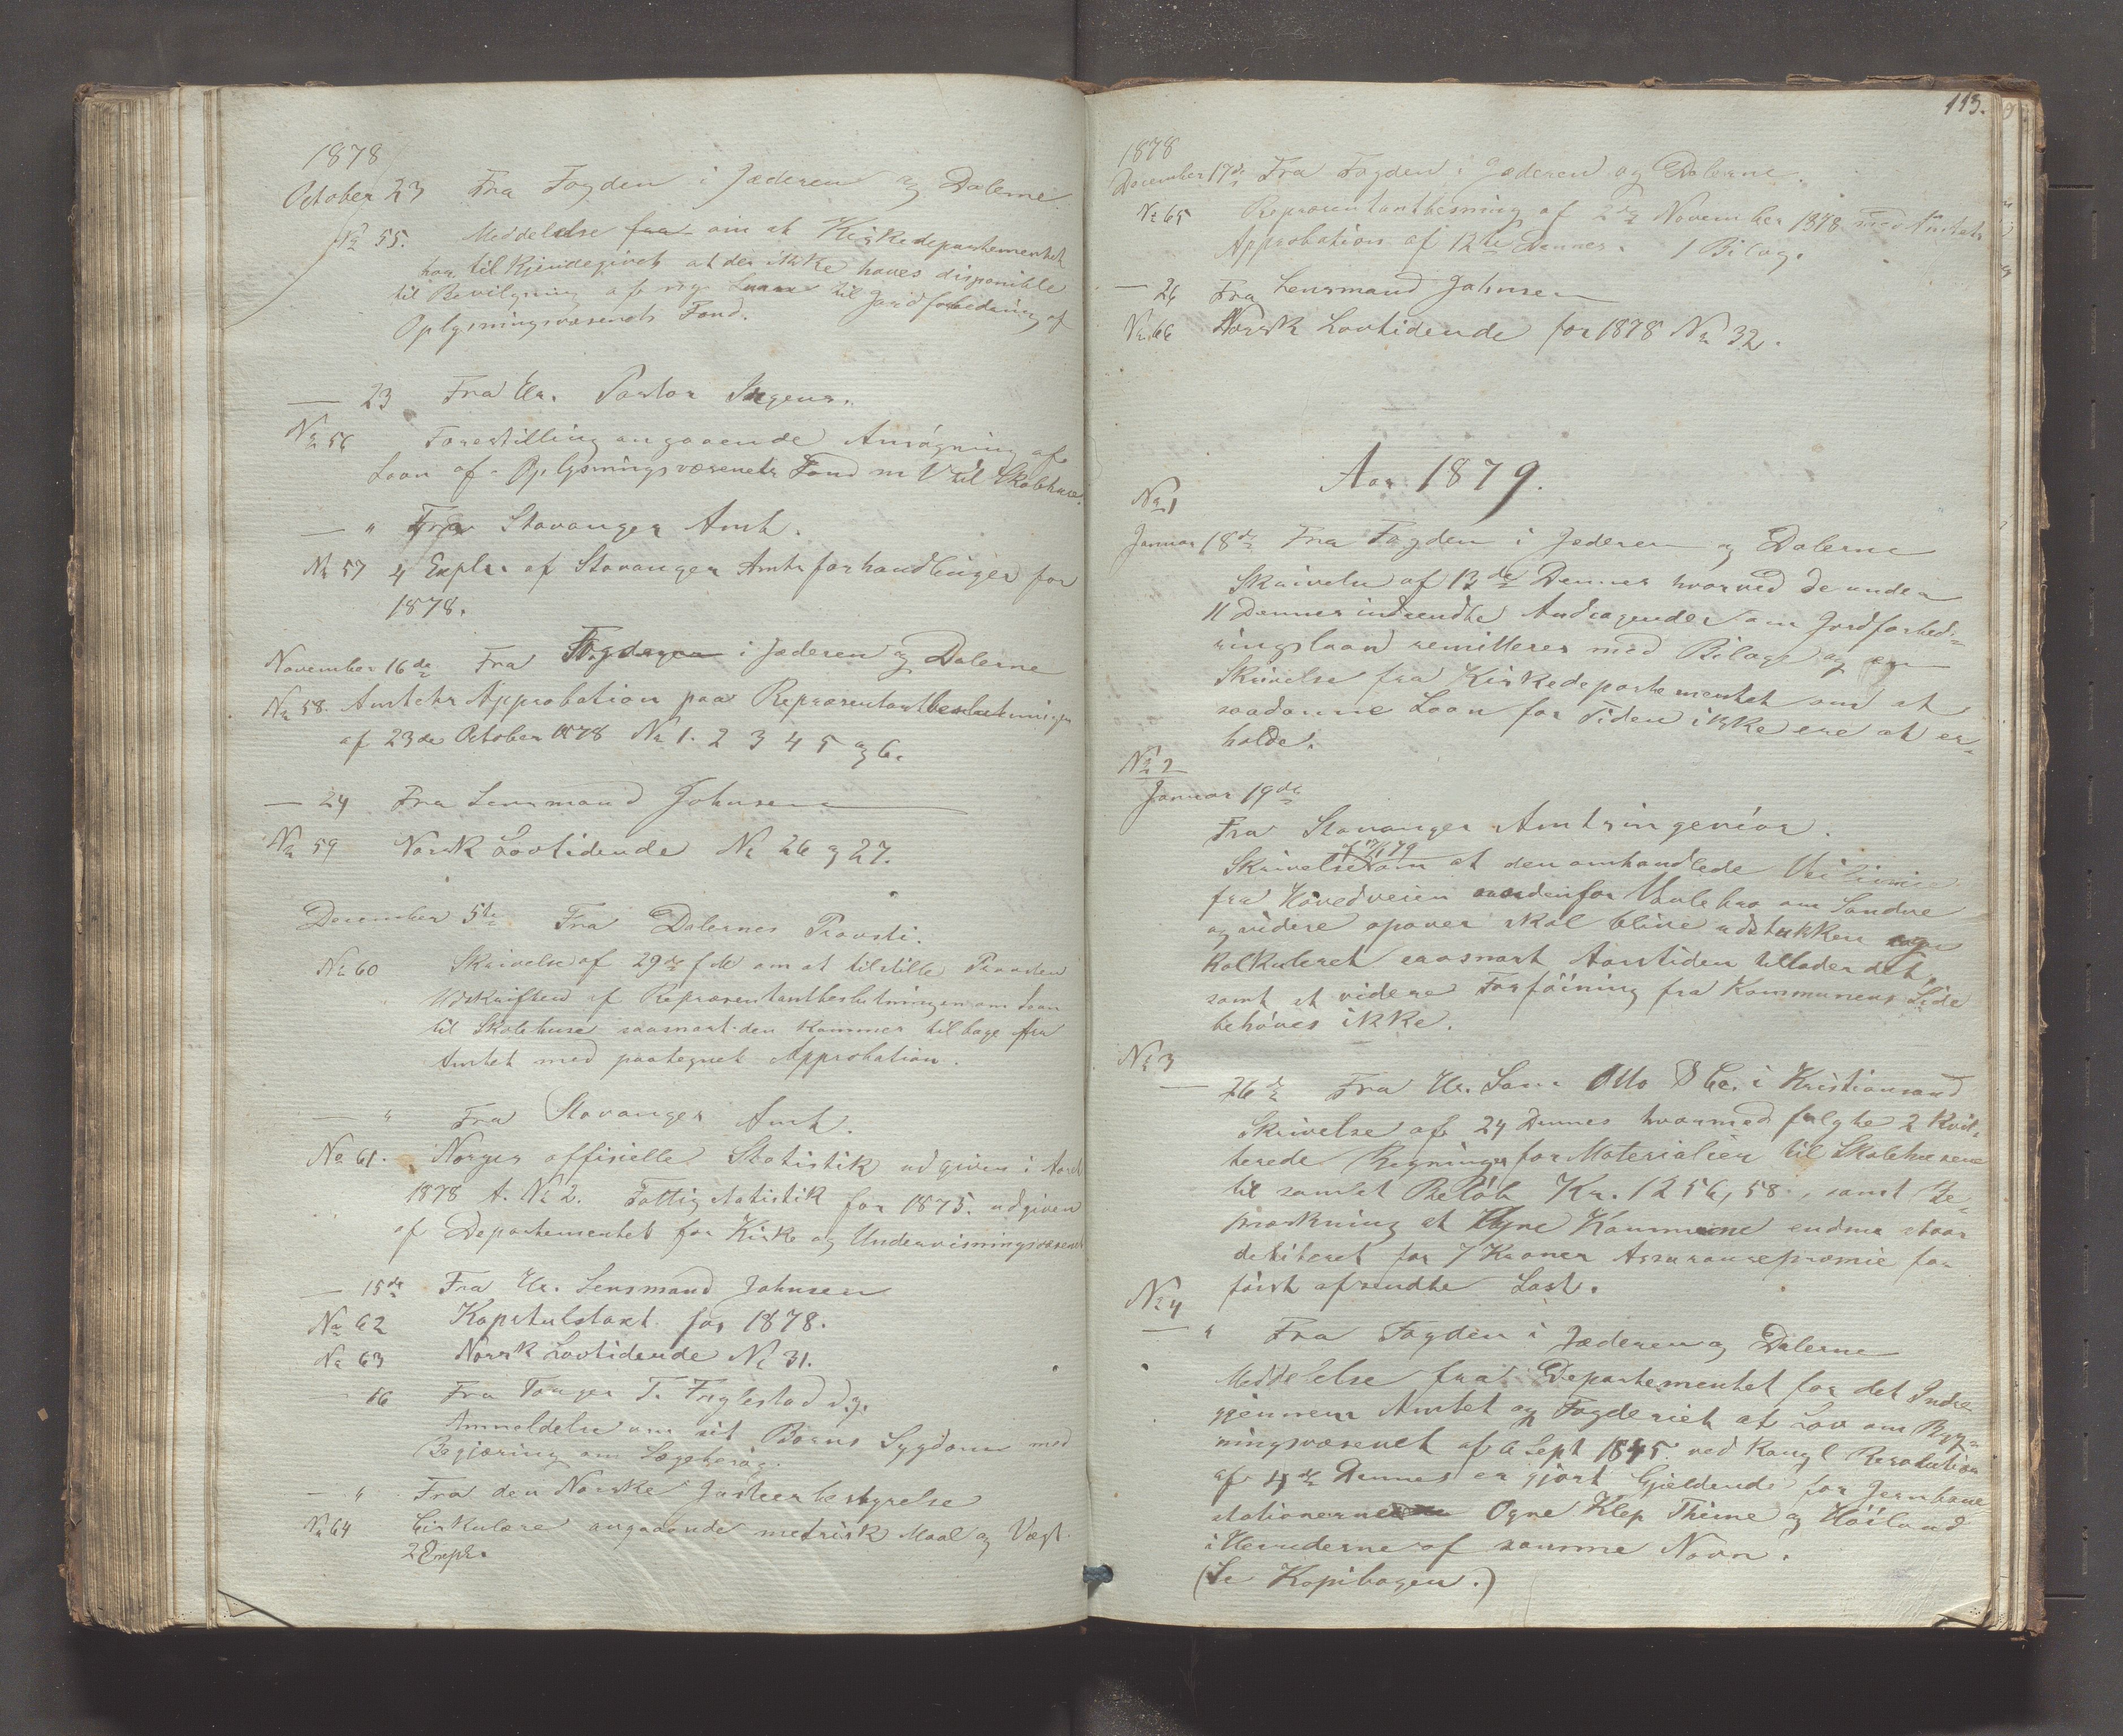 1878
October 23 Fra Fogden i Jæderen og Dalerne.
No 55. Meddelelse fra om at Kirkedepartementet
har tilkjendegivet at der ikke haves disponible
til Bevilgning af nye Laane til Jordforbedring af
Oplysningsvæsenets Fond.
— 23 Fra Hr. Pastor
No 56 Forestilling angaaende Ansøgning af
Laan af Oplysningsvæsenets Fond m V til Skolehuse.
— " Fra Stavanger Amt.
No 57 4 Explr. af Stavanger Amts forhandlinger for
1878.
November 16de Fra Fogden i Jæderen og Dalerne
No 58. Amtets Approbation paa Repræsentantbeslutninger
af 23de October 1878 No 1. 2 3 4 5 og 6.
— 24 Fra Lensmand Johnsen
No 59 Norsk Lovtidende No 26 og 27.
December 5te Fra Dalernes Provsti.
No 60 Skrivelse af 29de f M om at tilstille Provsten
Udskriften af Repræsentantbeslutningen om Laan
til Skolehuse saasnart den kommer tilbage fra
Amtet med paategnet Approbation.
— " Fra Stavanger Amt.
No 61. Norges officielle Statistik udgiven i Aaret
1878 A. No 2. Fattigstatistik for 1875. udgiven
af Departementet for Kirke og Undervisningsvæsenet
— 15de Fra Hr. Lensmand Johnsen
No 62 Kapitulstaxt for 1878.
No 63 Norsk Lovtidende No 31.
— 16 Fra Tonger T. Fuglestad d.y.
Anmeldelse om sit Barns Sygdom med
Begjæring om Lægebesøg.
— " Fra den Norske Justeerbestyrelse
No 64 Cirkulære angaaende metrisk Maal og Vægt.
2 Expl.
113.
1878
December 17de Fra Fogden i Jæderen og Dalerne.
No 65 Repræsentantbesning af 2den November 1878 med Amtets
Approbation af 12te Dennes. 1 Bilag.
— 26 Fra Lensmand Johnsen
No 66 Norsk Lovtidende for 1878 No 32.
Aar 1879.
No 1
Januar 18de Fra Fogden i Jæderen og Dalerne
Skrivelse af 13de Dennes hvorved de under
11 Dennes indsendte Andragender om Jordforbed-
ringslaan remitteres med Bilage og en
Skrivelse fra Kirkedepartementet om at
saadanne Laan for Tiden ikke ere at er-
holde.
No 2
Januar 19de
Fra Stavanger Amtsingeniør.
Skrivelse af 17/1 79 om at den omhandlede Veilinie
fra Hovedveien nordenfor Vaule bro om Søndre
og videre opover skal blive udstukken og
Kalkuleret saasnart Aarstiden tillader det,
samt at videre Forføining fra Kommunens Side
behøves ikke.
No 3
— 26de Fra Hr. Sam Otto & Co. i Kristiansand
Skrivelse af 24 Dennes hvormed fulgte 2 Kvit-
terede Regninger for Materialier til Skolehusene
til samlet Beløb Kr. 1256,58., samt Be-
mærkning at Ogne Kommune endnu staar
debiteret for 7 Kroner Assurancepræmie for
først afsendte Last.
No 4
— " Fra Fogden i Jæderen og Dalerne
Meddelelse fra Departementet for det Indre
gjennem Amtet og Fogderiet at Lov om Byg-
ningsvæsenet af 6 Sept 1845 ved Kongl Resolution
af 4de Dennes er gjort Gjeldende for Jernbane
stationerne Ogne Klep Thime og Høiland
i Herrederne af samme Navn.
(Se Kopibogen.)